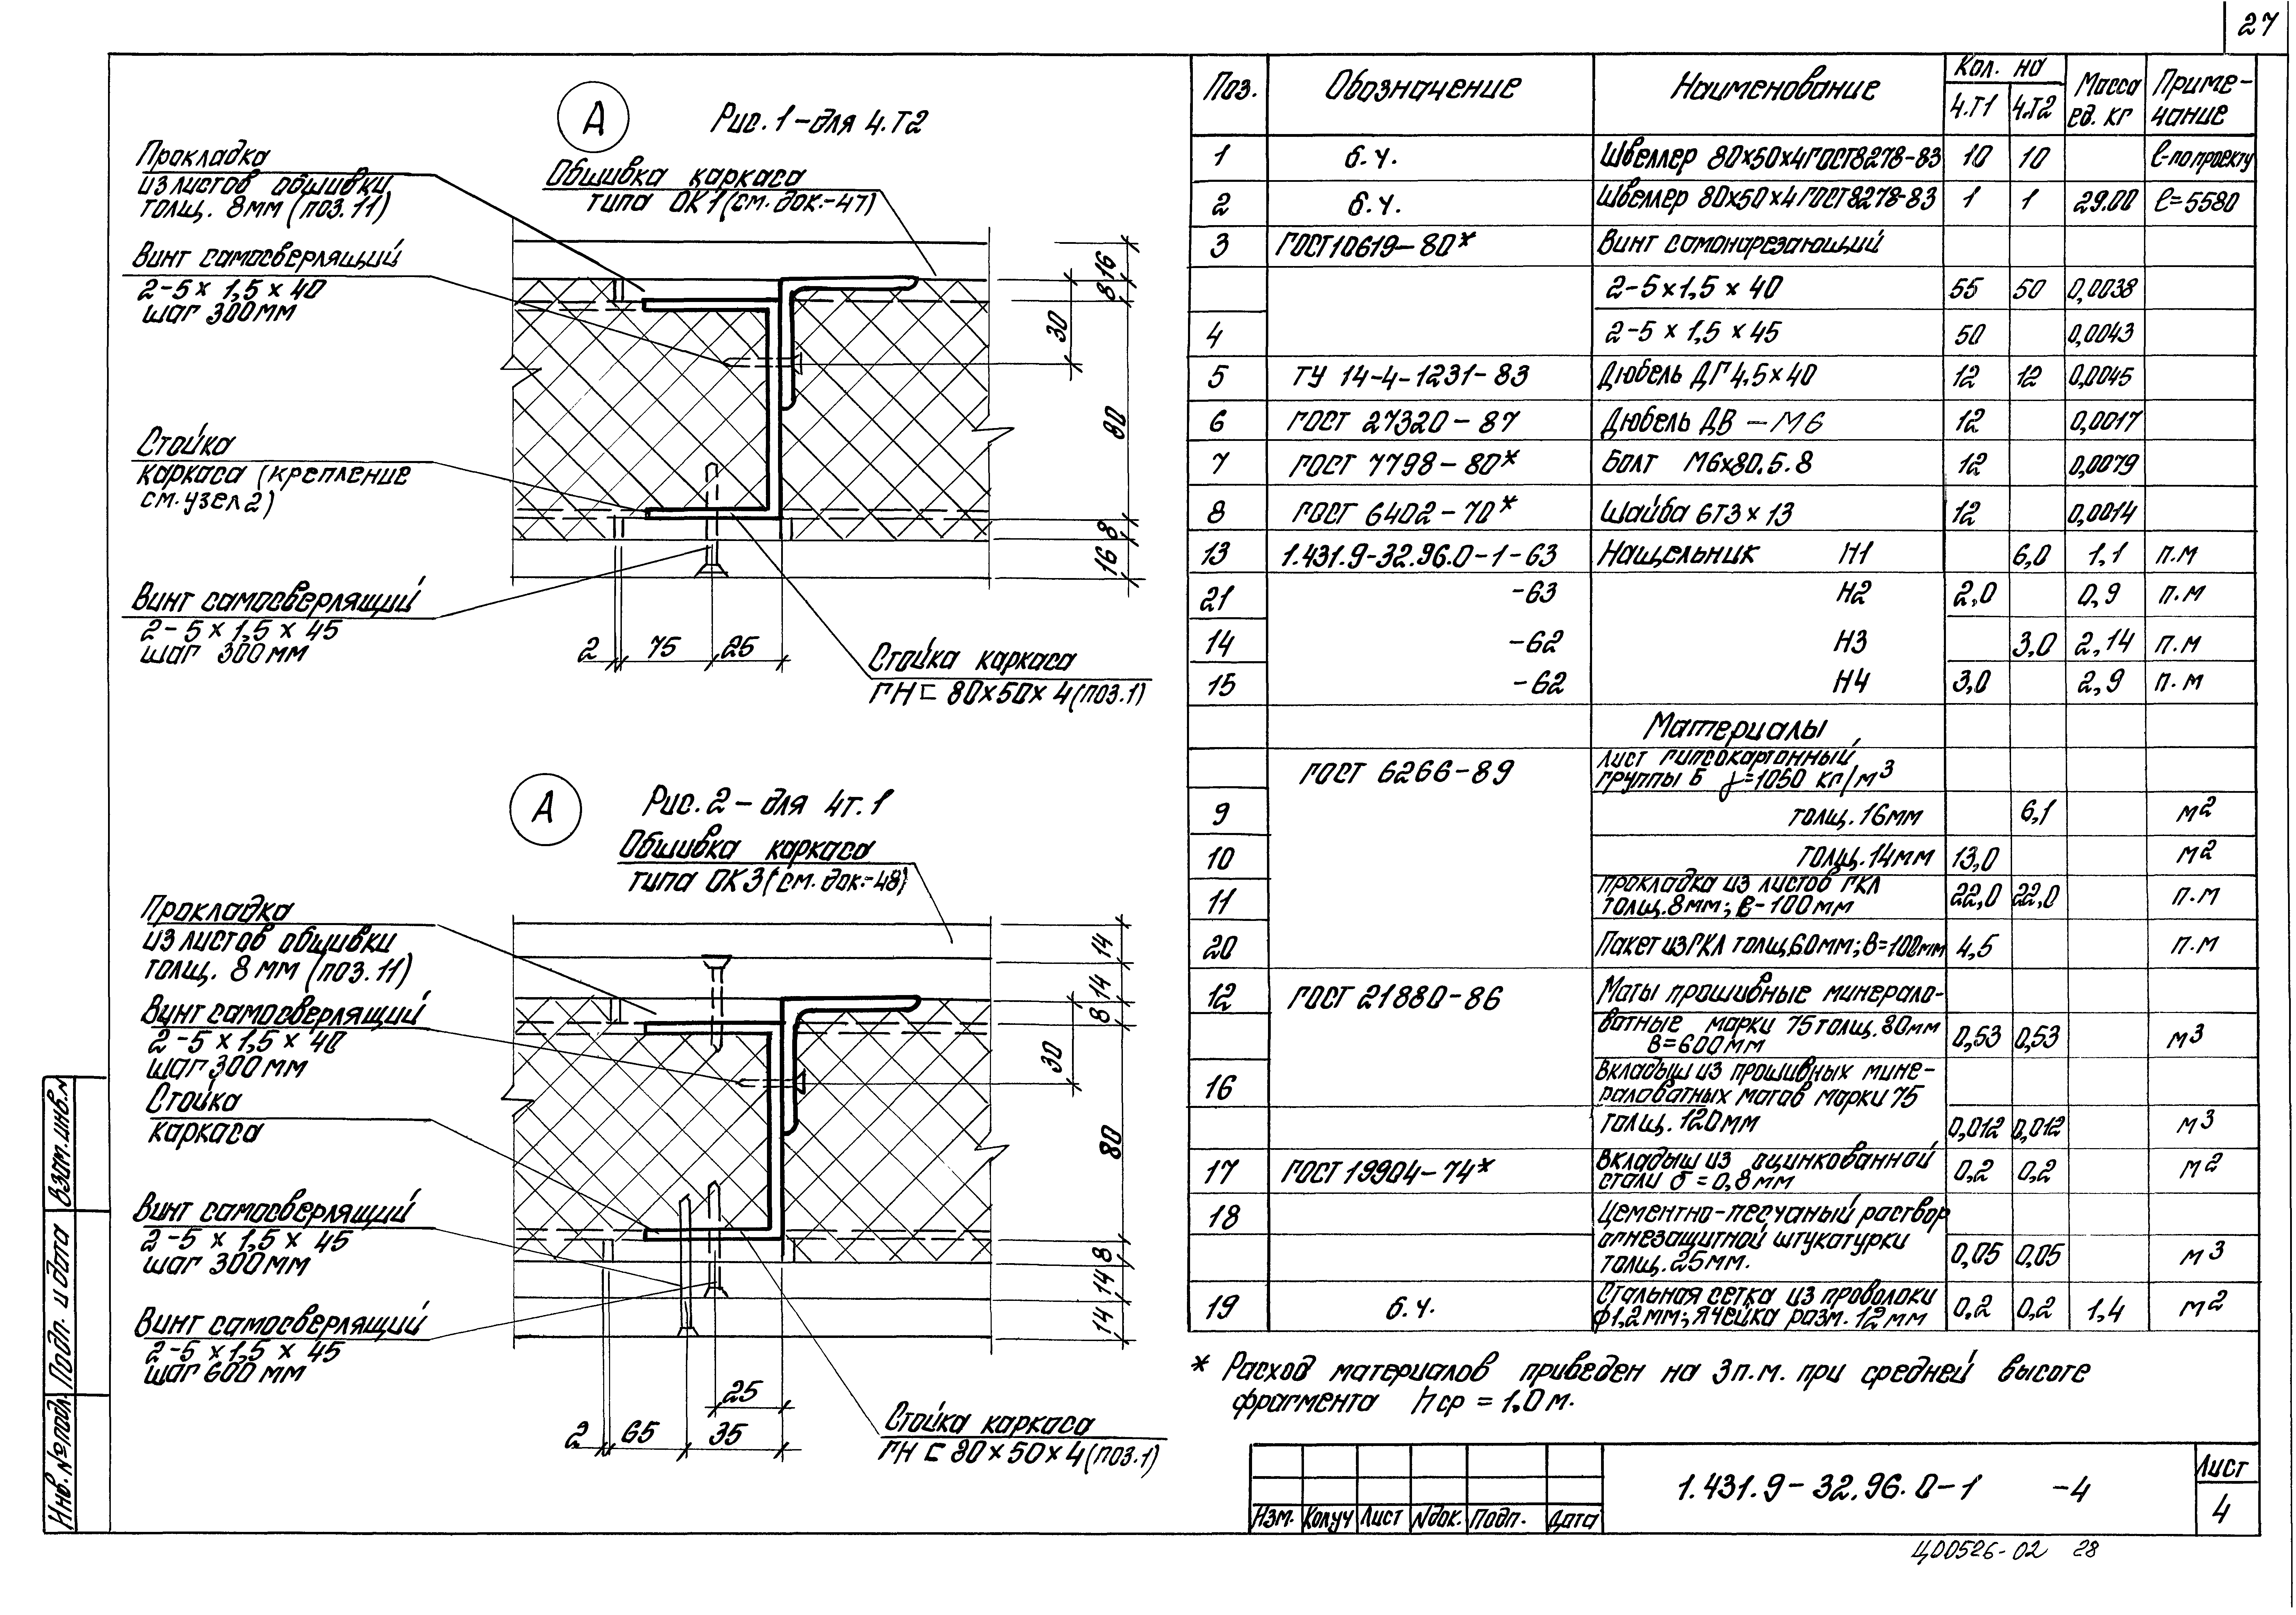 27
А
Рис. 1 - для 4.Т2
Прокладка
из листов обшивки
толщ. 8мм (поз. 11)
Обшивка каркаса
типа ОК1 (см. док.-47)
Винт самосверлящий
2-5 х 1,5 х 40
шаг 300мм
Стойка
каркаса (крепление
см. узел 2)
Винт самосверлящий
2-5 х 1,5 х 45
шаг 300мм
16
8
30
80
8
16
2 75 25
Стойка каркаса
ГН ⊏ 80х50х4 (поз.1)
А
Рис. 2 - для 4т.1
Обшивка каркаса
типа ОК3 (см. док.-48)
Прокладка
из листов обшивки
толщ. 8 мм (поз. 11)
Винт самосверлящий
2-5 х 1,5 х 40
шаг 300мм
Стойка
каркаса
Винт самосверлящий
2-5 х 1,5 х 45
шаг 300мм
Винт самосверлящий
2-5 х 1,5 х 45
шаг 600 мм
14
14
8
30
80
8
14
14
25
2 65 35
Стойка каркаса
ГН ⊏ 80х50х4 (поз.1)
Поз. Обозначение Наименование Кол. на Масса ед. кг Приме-чание
4.Т1 4.Т2
1 б.ч. Швеллер 80х50х4 ГОСТ8278-83 10 10 ℓ-по проекту
2 б.ч. Швеллер 80х50х4 ГОСТ8278-83 1 1 29.00 ℓ=5580
3 ГОСТ10619-80* Винт самонарезающий
2-5х1,5х40 55 50 0,0038
4 2-5 х 1,5 х 45 50 0,0043
5 ТУ 14-4-1231-83 Дюбель ДГ 4,5х40 12 12 0,0045
6 ГОСТ 27320-87 Дюбель ДВ - М6 12 0,0017
7 ГОСТ 7798-80* Болт М6х80.5.8 12 0,0079
8 ГОСТ 6402-70* Шайба 6Т3х13 12 0,0014
13 1.431.9-32.96.0-1-63 Нащельник Н1 6,0 1,1 п.м
21 -63 Н2 2,0 0,9 п.м
14 -62 Н3 3,0 2,14 п.м
15 -62 Н4 3,0 2,9 п.м
Материалы
ГОСТ 6266-89 Лист гипсокартонный
группы Б γ=1050 кг/м3
9 толщ. 16мм 6,1 м2
10 толщ. 14мм 13,0 м2
11 Прокладка из листов ГКЛ
толщ. 8мм; в-100мм 22,0 22,0 п.м
20 Пакет из ГКЛ толщ. 60мм; в=100мм 4,5 п.м
12 ГОСТ 21880-86 Маты прошивные минерало-
ватные марки 75 толщ. 80мм
в=600мм 0,53 0,53 м3
16 Вкладыш из прошивных мине-
раловатных матов марки 75
толщ. 120мм 0,012 0,012 м3
17 ГОСТ 19904-74* Вкладыш из оцинкованной
стали б=0,8мм 0,2 0,2 м2
18 Цементно-песчаный раствор
огнезащитной штукатурки
толщ. 25мм. 0,05 0,05 м3
19 б.ч. Стальная сетка из проволоки
ф1,2мм; ячейка разм. 12мм 0.2 0,2 1,4 м2
* Расход материалов приведен на 3 п.м. при средней высоте
фрагмента hср = 1.0 м.
Изм. Колуч Лист Nдок. Подп. Дата
1.431.9-32.96.0-1 -4
Лист
4
Взам.инв.N
Подп. и дата
Инв. № подл.
Ц00526-02 28